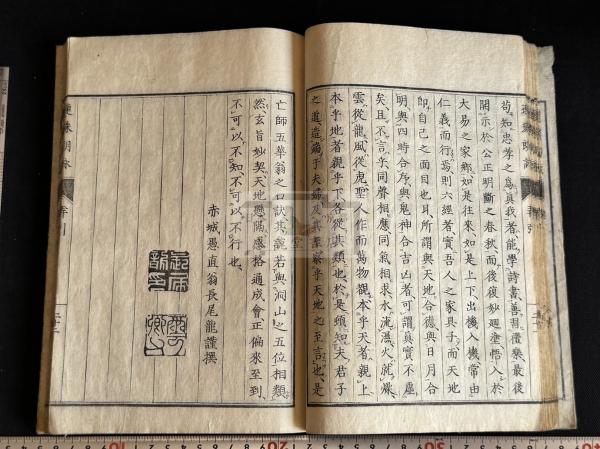 苟知忠孝之為真我者能學詩書善習禮樂最後
開示於公正明斷之春秋而後復妙廻塗悟入於
大易之家鄉如是往來如是上下出機入機常由
仁義而行焉則六經者實吾人之家具子而天地
即自己之面目也耳所謂與天地合德與日月合
明與四時合序與鬼神合吉凶者可謂真實不虛
矣且不言乎同聲相應同氣相求水流濕火就燥
雲從龍風從虎聖人作而萬物覩本乎天者親上
本乎地者親乎下各從其類也於是頌知夫君子
之道造端于夫婦及其至察乎天地之至言也是
亡師五峯翁之口訣其龍若與洞山之五位相類
然玄旨妙契天地懸隔感格通成會正偏來至到
不可以不知不可以不行也
赤城愚直翁長尾龍謹撰
20
30